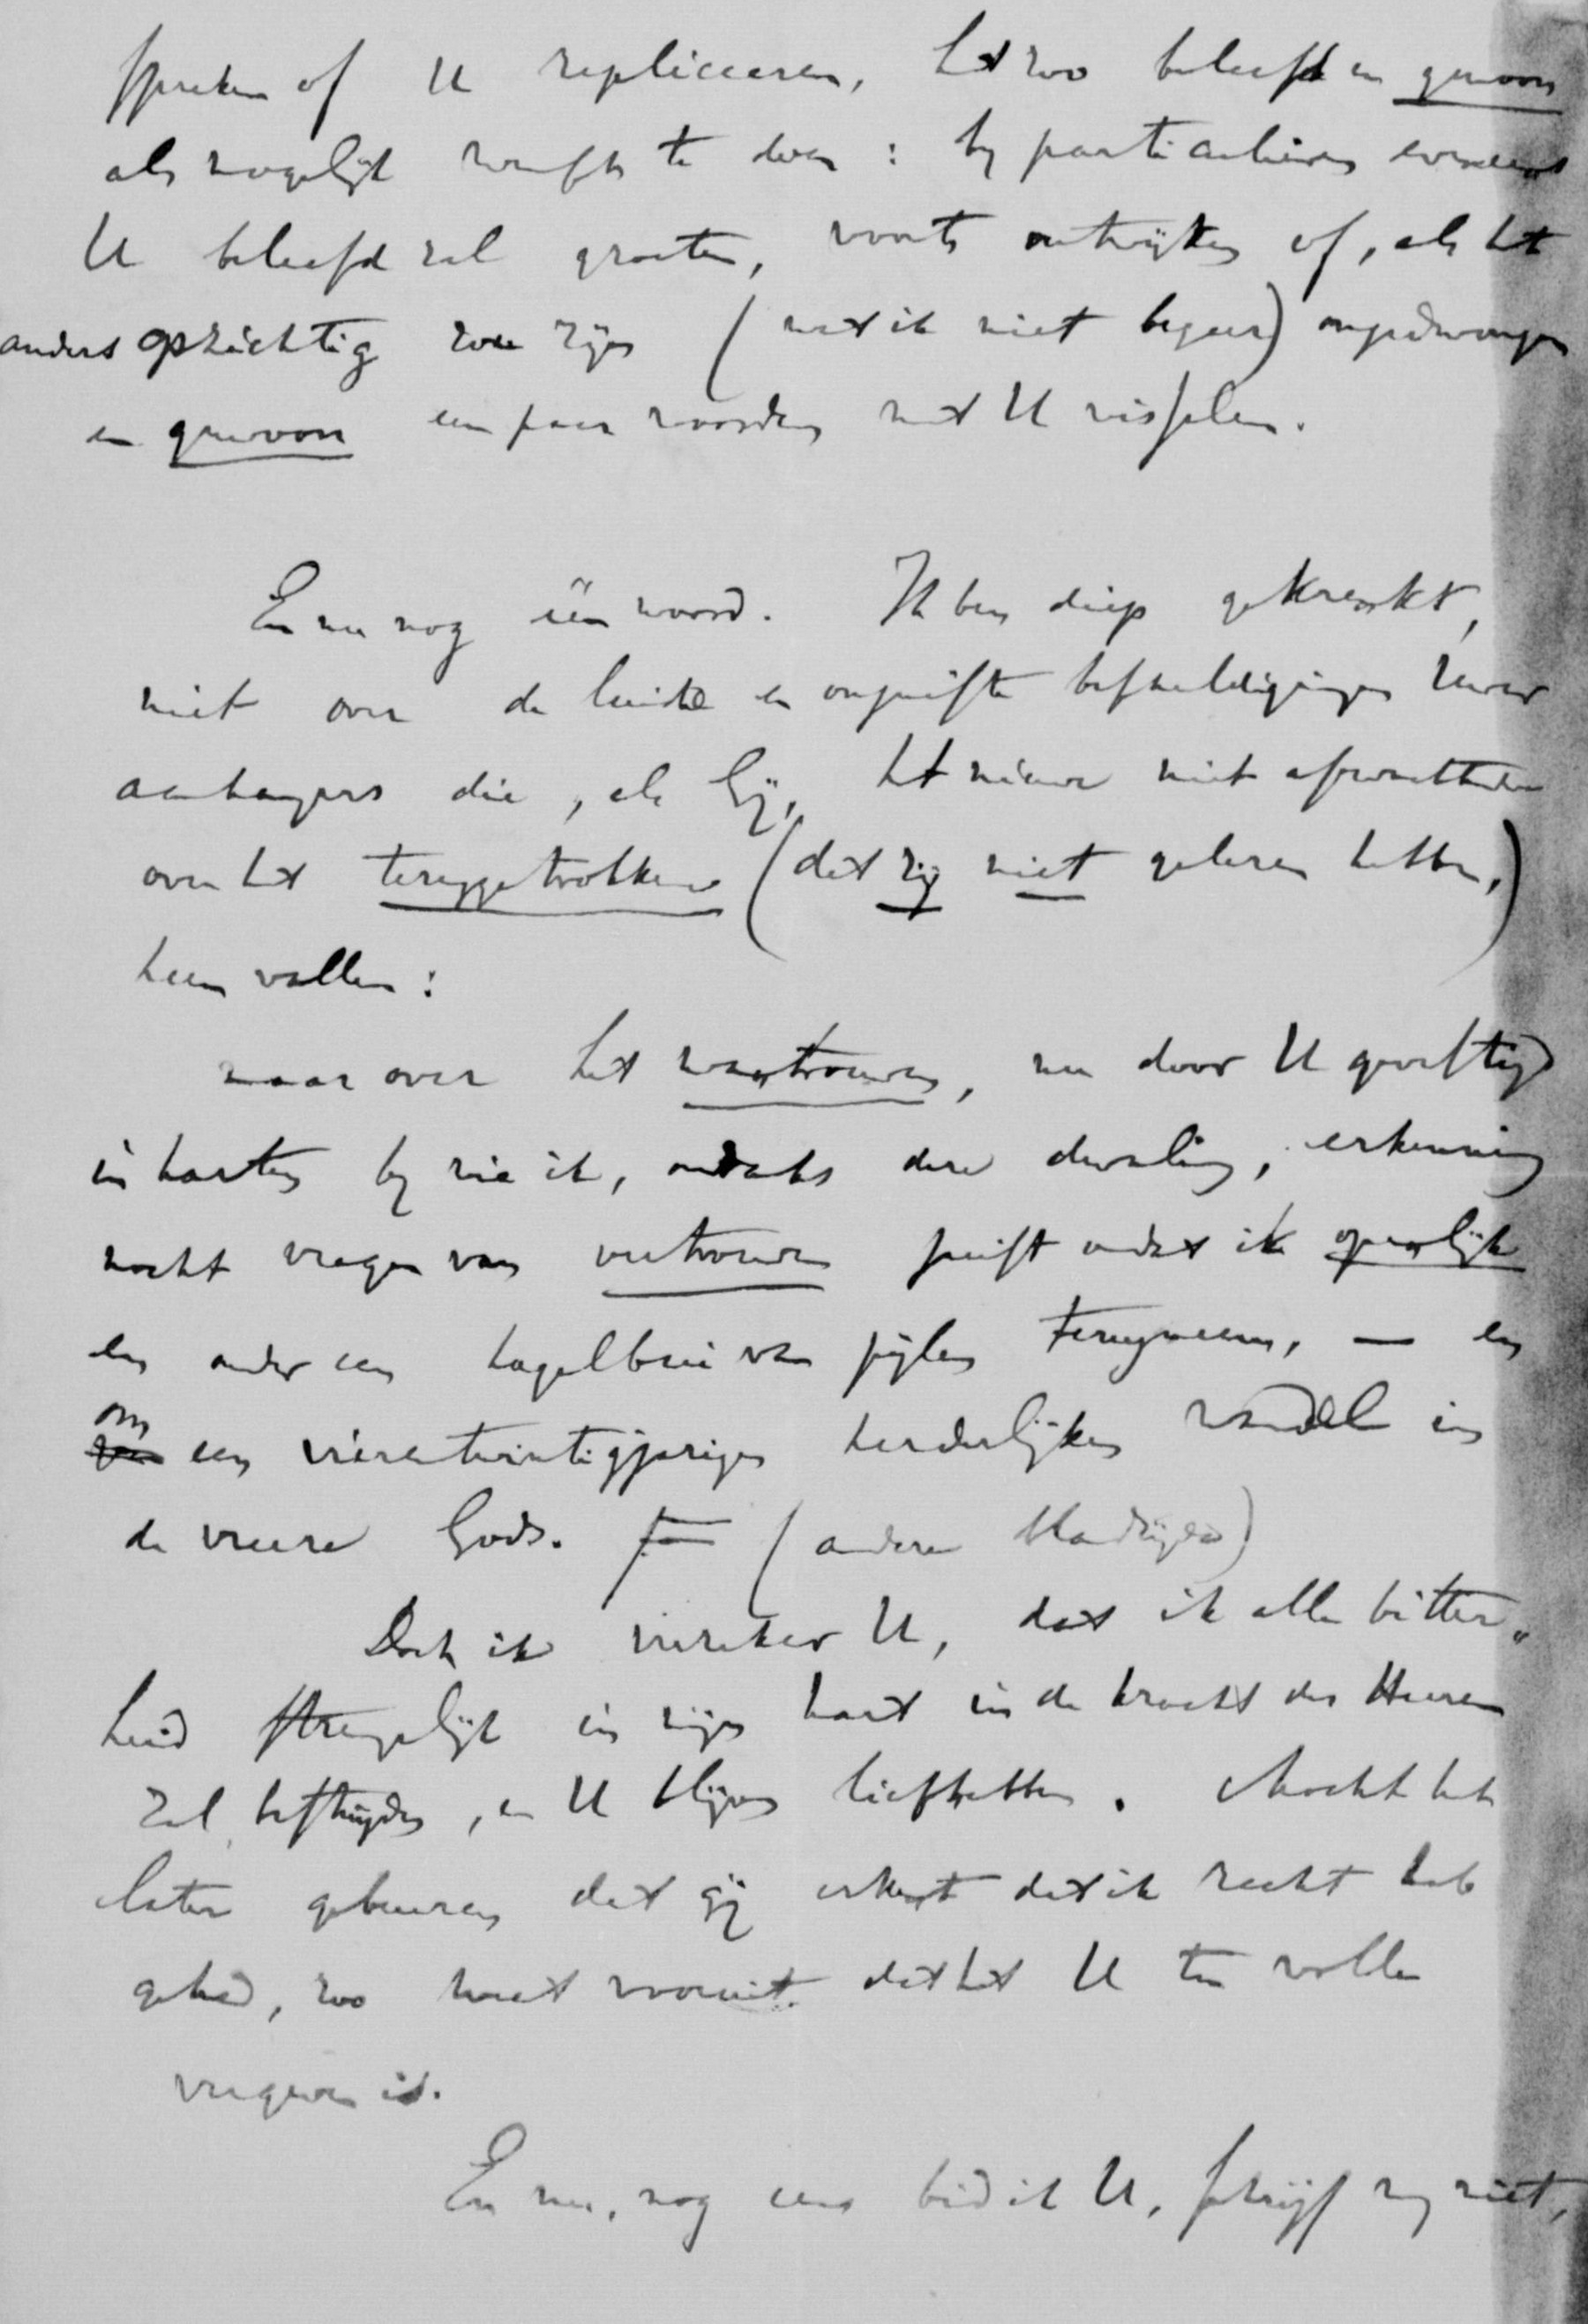 spreken of U repliceeren, het zoo beleefd en gewoon
als mogelijk wensch te doen: by particulieren
U beleefd zal groeten, voorts ontwijken of, als het
anders opzichtig zou zijn (wat ik niet begeer) ongedwongen
en gewoon een paar woorden met U wisselen.
En nu nog één woord. Ik ben diep gekrenkt,
niet over de beschuldigingen Uwer
aanhangers die, als Gij, het nieuwe niet afwachtten
over het teruggetrokkene (dat zij niet gelezen hebben,)
heen vallen:
maar over het wantrouwen, nu door U gevestigd
in harten by wie ik, ondanks deze dwaling, erkenning
mocht vragen van vertrouwen juist omdat ik openlijk
en onder een hagelbui van pijlen terugneem, — en
om een vierentwintigjarigen herderlijken wandel in
de vreeze Gods. (andere bladzijde)
Doch ik verzeker U, dat ik alle bitter-
heid in mijn hart in de kracht des Heeren
zal bestrijden, en U blijven liefhebben. Mocht het
later gebeuren dat gij erkent dat ik recht heb
gehad, zoo weet vooruit dat het U ten volle
vergeven is.
En nu, nog eens bid ik U, schrijf my niet,